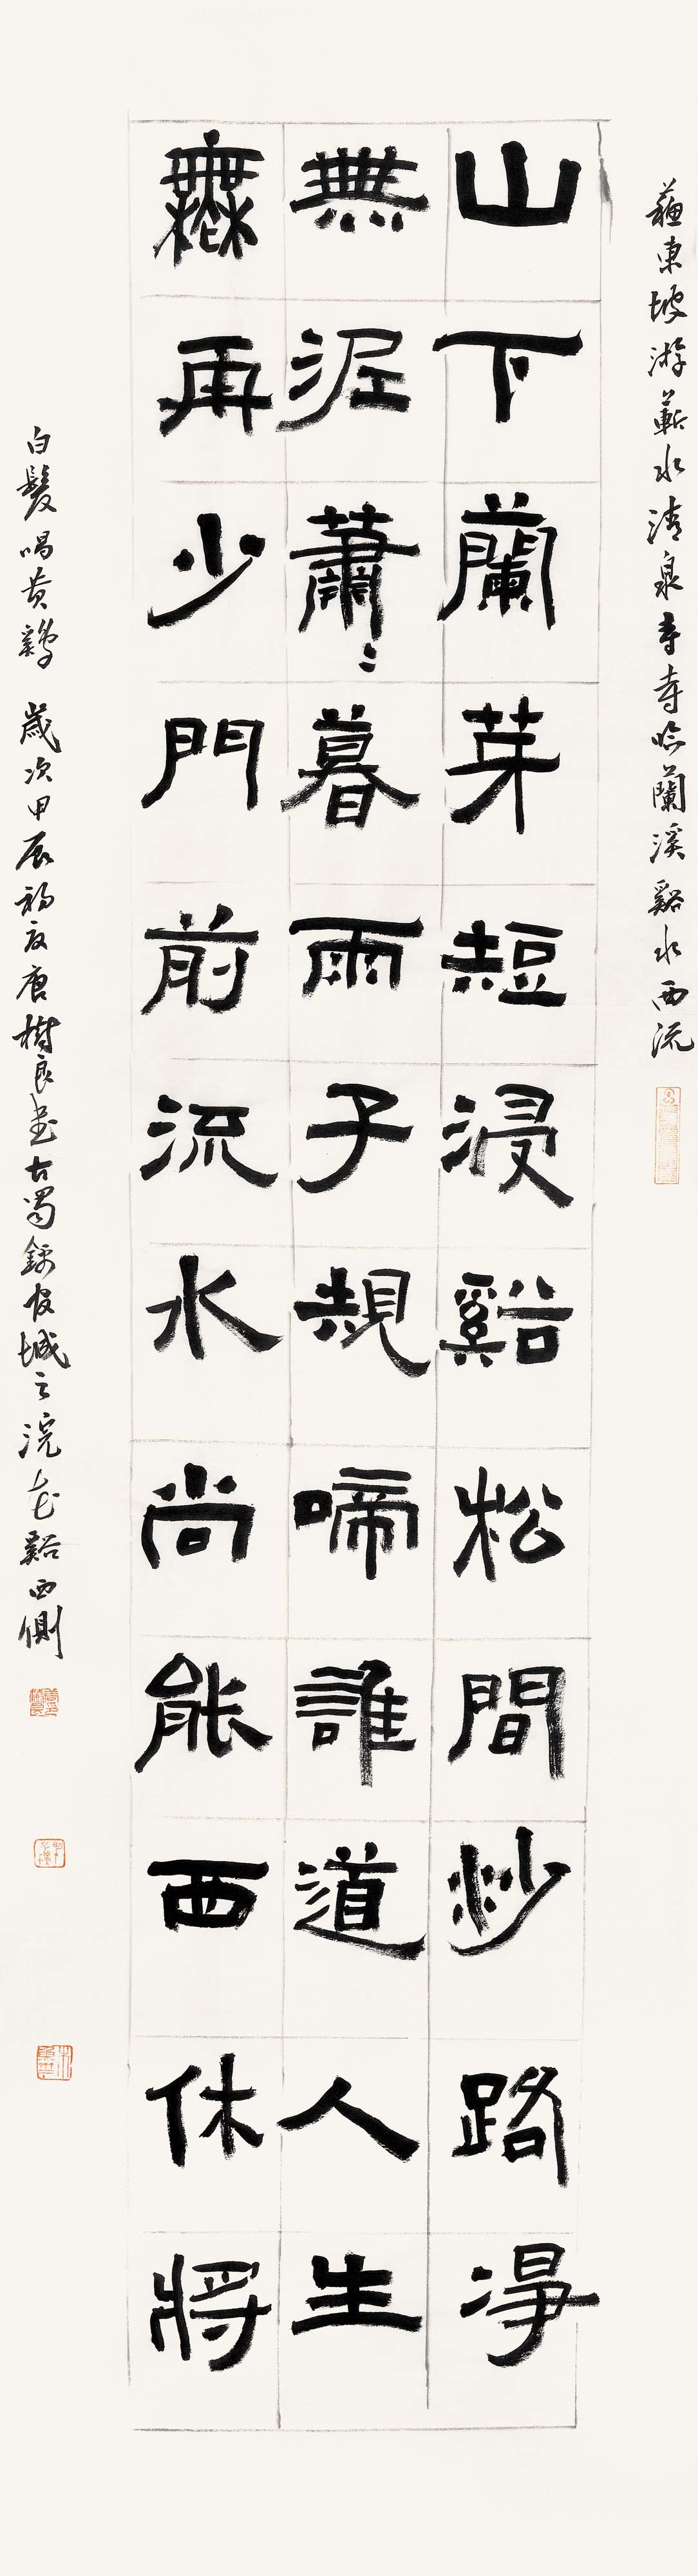 蘇東坡游蘄水清泉寺寺臨蘭溪谿水西流
山下蘭芽短浸谿松間沙路淨
無泥蕭〻暮雨子規啼誰道人生
無再少門前流水尚能西休將
白髮唱黃鷄 歲次甲辰初夏唐樹良書古蜀錦官城之浣花谿西側